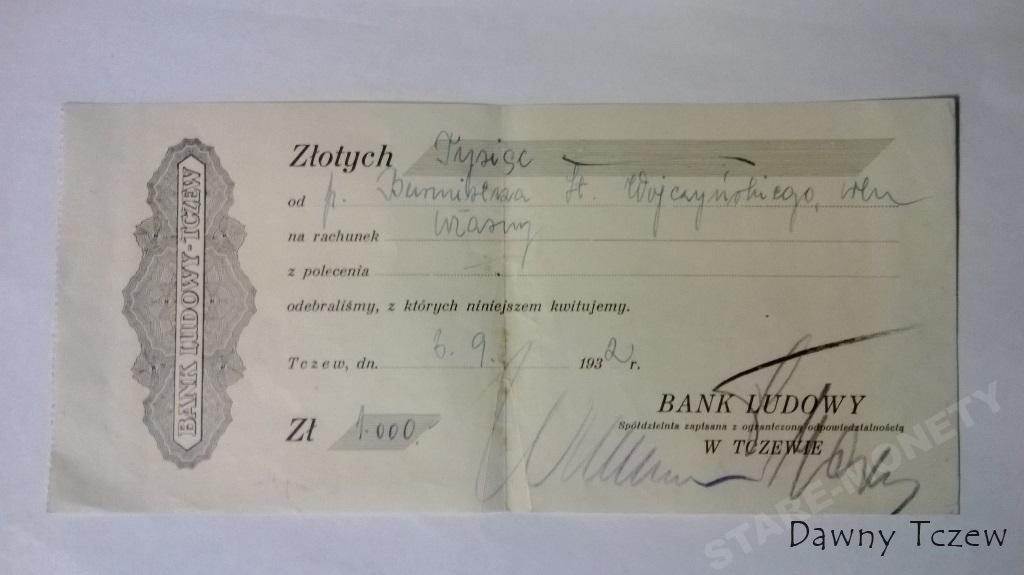 BANK LUDOWY-TCZEW
Złotych Tysiąc
od p. Burmistrza St. Wojczyńskiego, wln
na rachunek własny
z polecenia
odebraliśmy, z których niniejszem kwitujemy.
Tczew, dn. 6. 9. 1932 r.
Zł 1.000
BANK LUDOWY
Spółdzielnia zapisana z ograniczoną odpowiedzialnością
W TCZEWIE
STARE-MONETY
Dawny Tczew